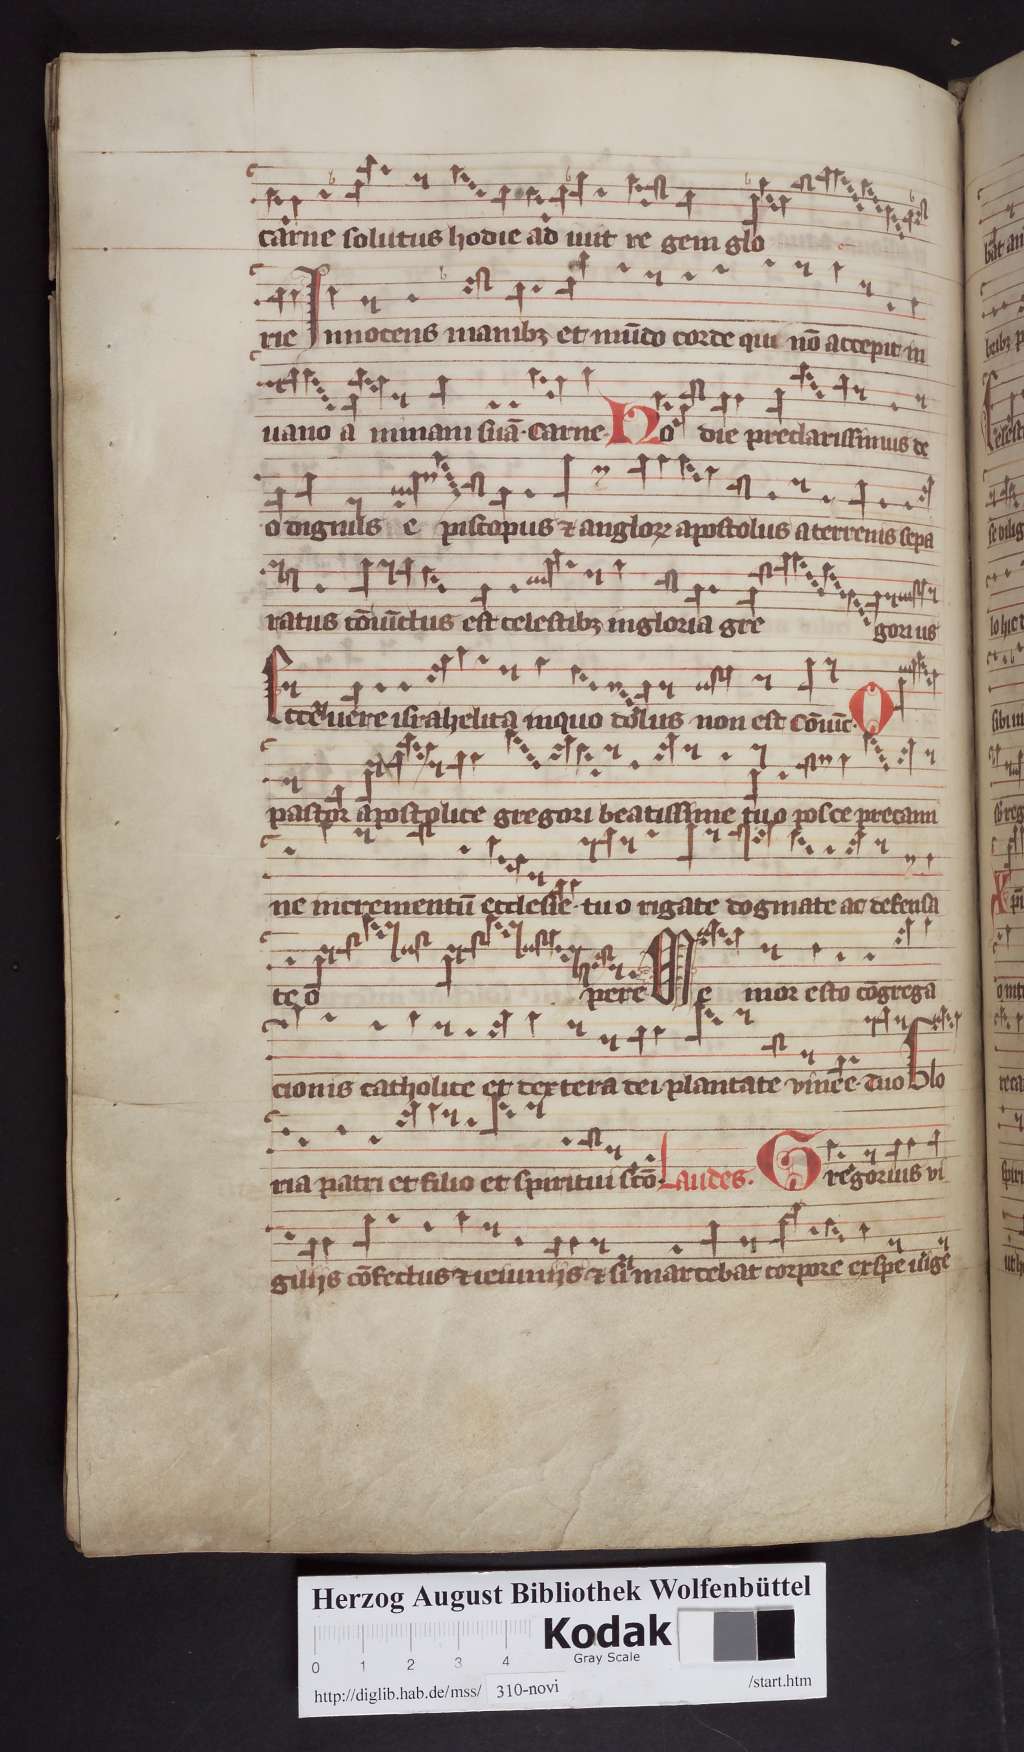 carne solutus hodie ad iuit re gem glo
rie Innocens manibꝫ et mūdo corde qui nō accepit in
uano a nimam suā. carne. Ho die preclarissimus de
o dignus e piscopus ⁊ angloꝝ apostolus a terrenis sepa
ratus cōiūctus est celestibꝫ in gloria gre gori us
Ecce uere israhelita in quo dolus non est cōiūc. O
pastor apostolice gregori beatissime tuo posce precami
ne incrementū ecclesie. tuo rigate dogmate ac defensa
te o pere Me mor esto cōgrega
cionis catholice et dextera dei plantate vinee. Tuo Glo
ria patri et filio et spiritui scō. Laudes. Gregorius vi
giliis cōfectus ⁊ ieiuniis ⁊ si marcebat corpore et spe
Herzog August Bibliothek Wolfenbüttel
0 1 2 3 4
Kodak
Gray Scale
http://diglib.hab.de/mss/ 310-novi /start.htm